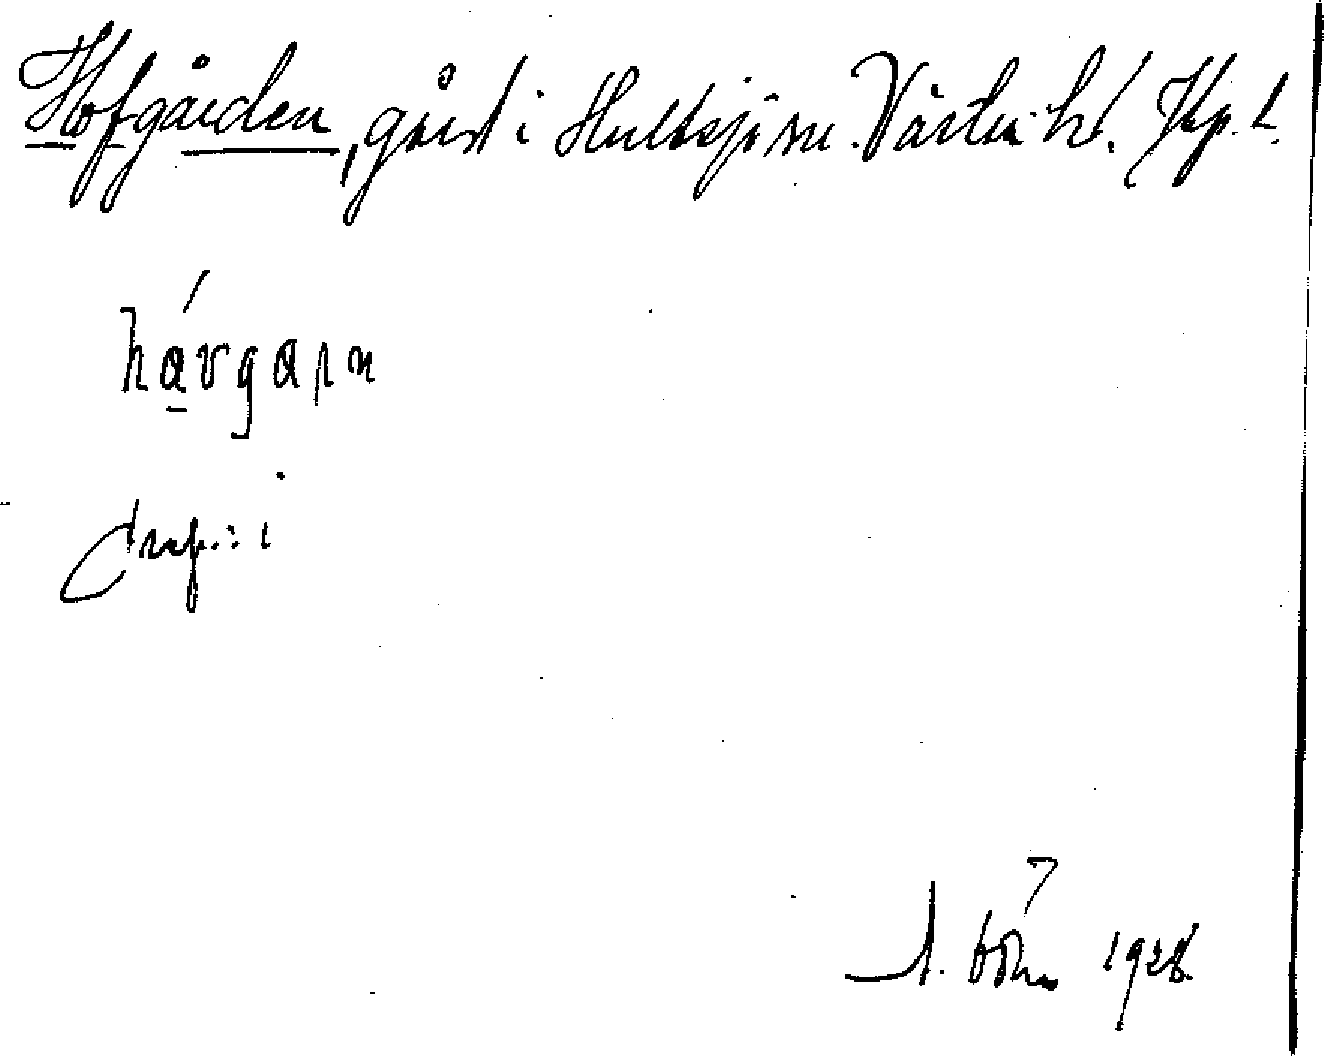 Hofgården, gård i Hultsjö sn. Västra hd. Jkp. l.
hávgaꞃn
prep.: i
1928